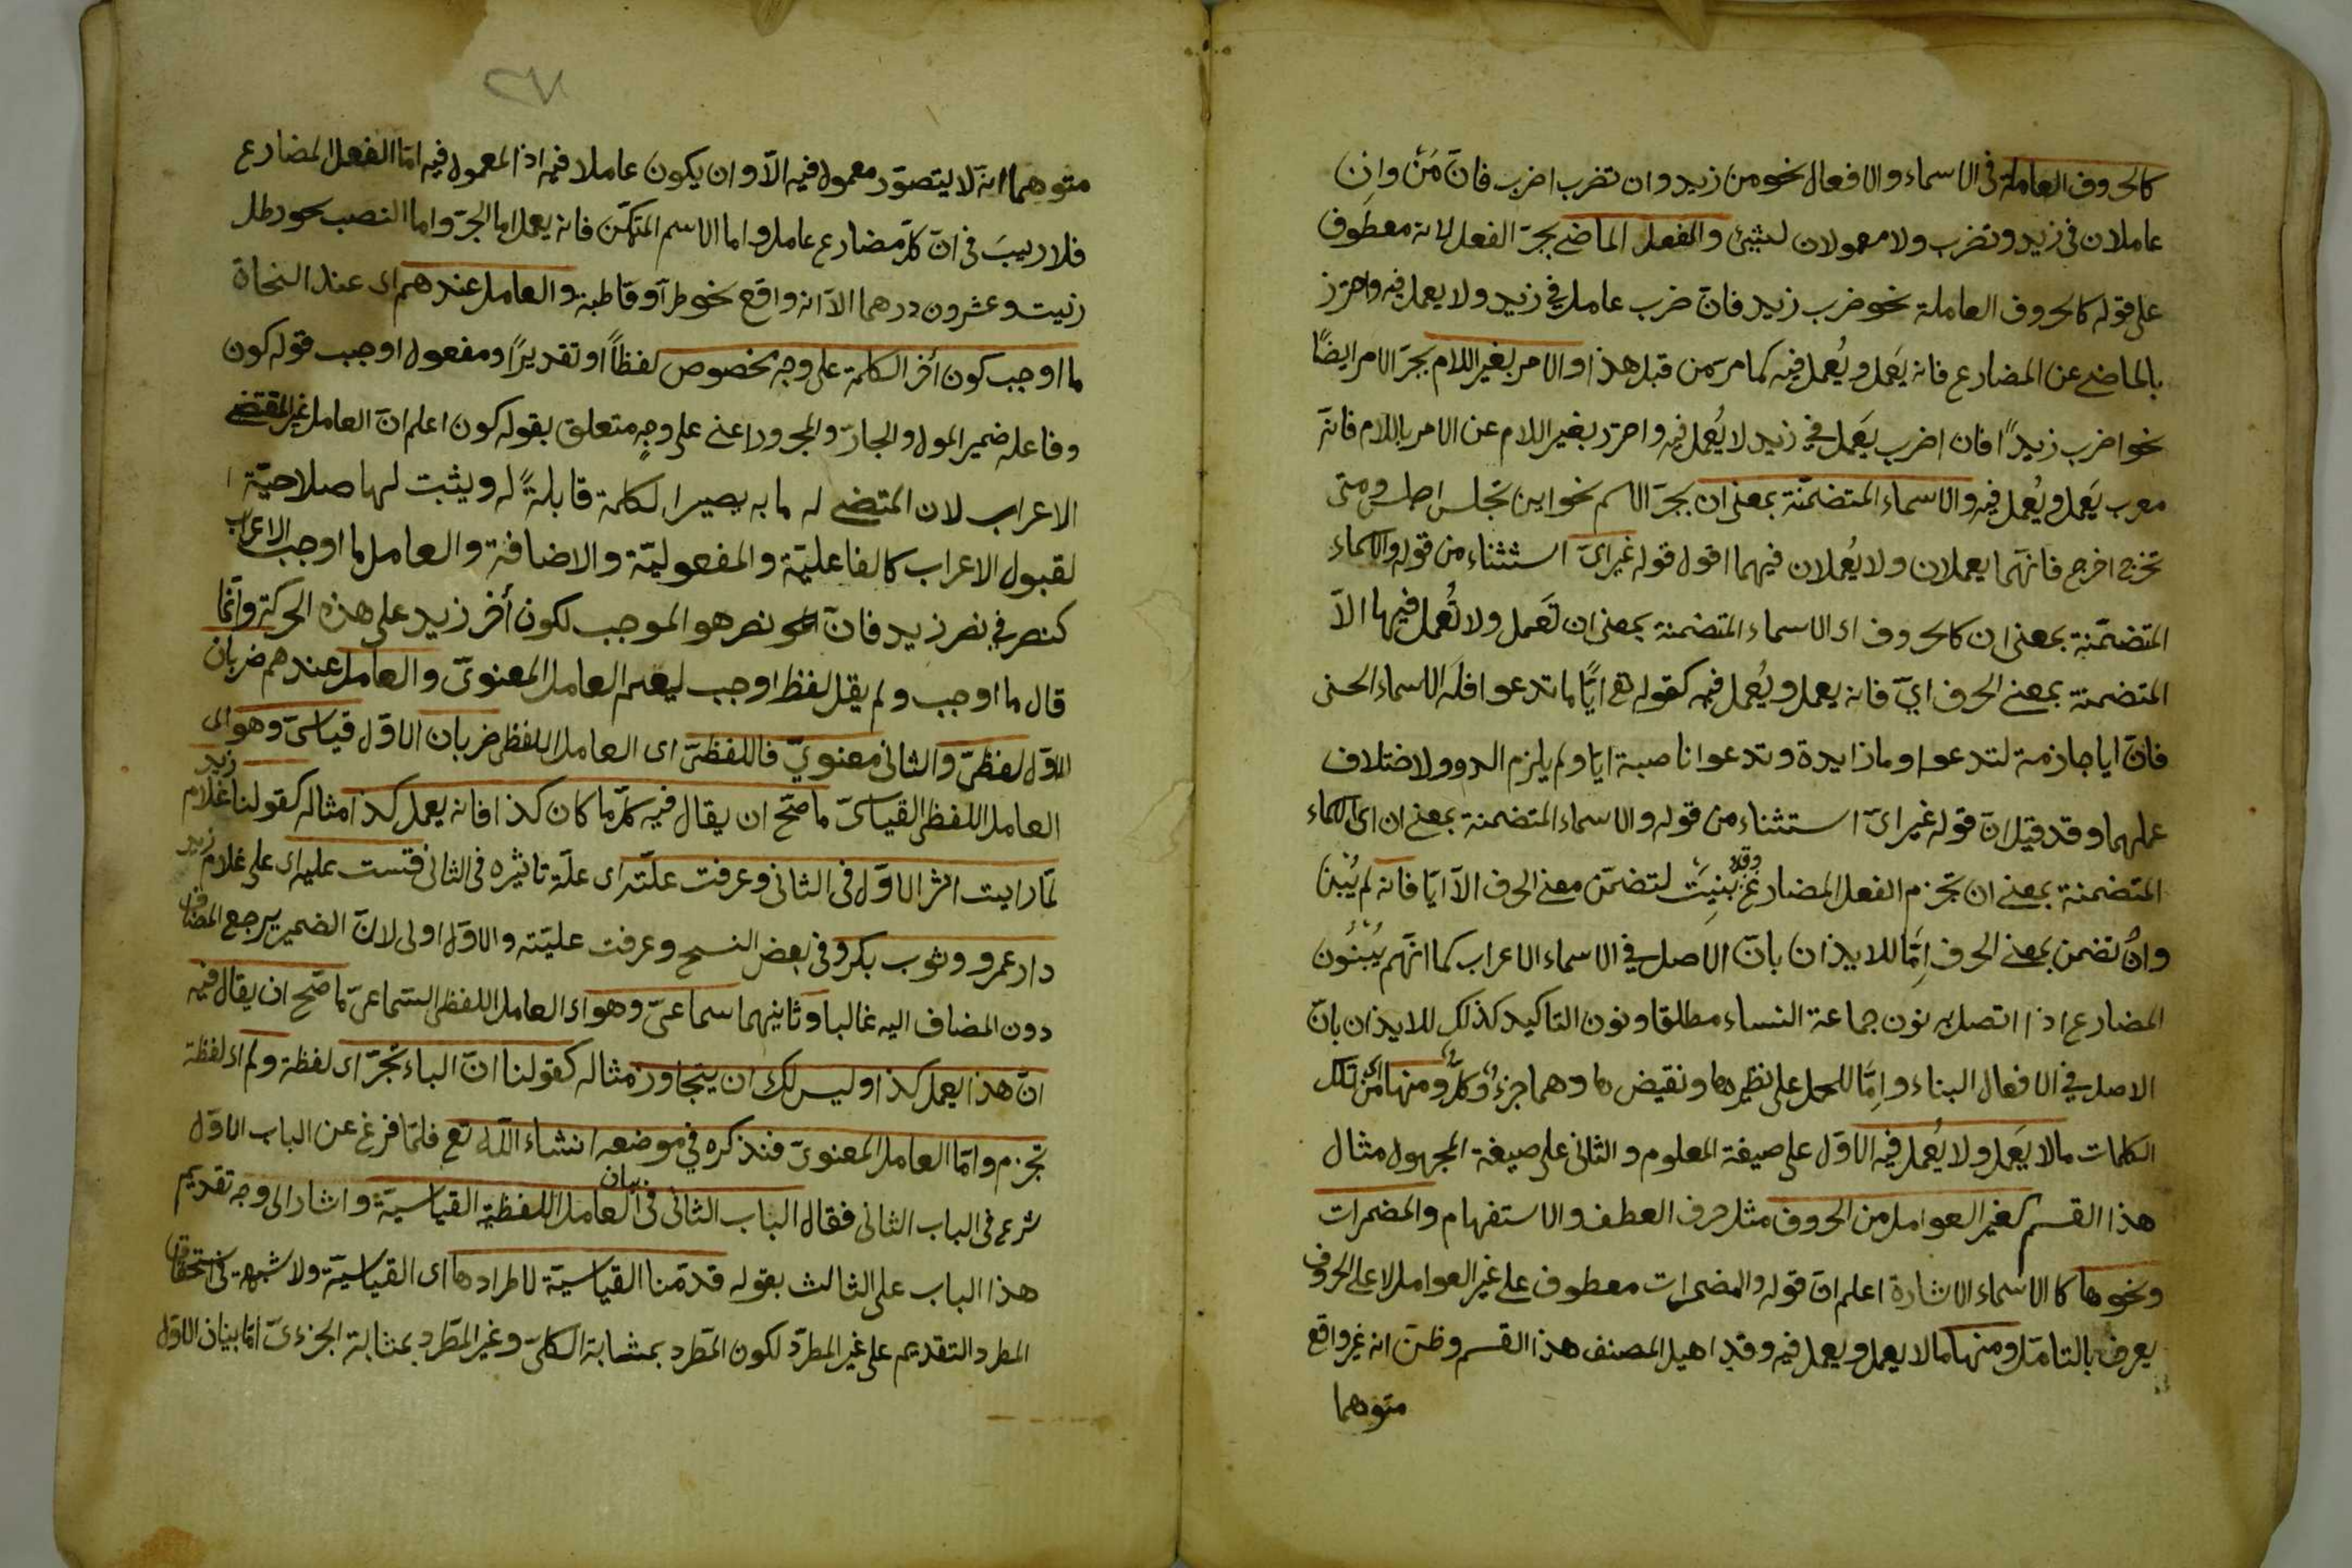 كالحروف العاملة فى الاسماء والافعال نحو من زيد وان تضرب اضرب فانّ مِنْ وان
عاملان فى زيد وتضرب ولا معمولان لشيئ والفعل الماضى بجرّ الفعل لانه معطوف
على قوله كالحروف العاملة نحو ضرب زيد فانّ ضرب عامل فى زيد ولا يعمل فيه واحترز
بالماضى عن المضارع فانه يَعمل ويُعمل فيه كما مرّ من قبل هذا والامر بغير اللام بجرّ الامر ايضًا
نحو اضرب زيدًا فان اضرب يَعمل فى زيد لا يُعمل فيه واحترز بغير اللام عن الامر باللام فانّه
معرب يَعمل ويُعمل فيه والاسماء المتضمّنة بمعنى ان بجرّ الاسم نحو اين تجلس اجلس ومتى
تخرج اخرج فانّهما يعملان ولا يُعملان فيهما اقول قوله غير اىّ استثناء من قوله والاسماء
المتضمّنة بمعنى ان كالحروف اى الاسماء المتضمنة بمعنى ان تَعمل ولا تُعمل فيها الاّ
المتضمنة بمعنى الحرف اىّ فانه يعمل ويُعمل فيه كقوله تع ايًّا ما تدعوا فله الاسماء الحسنى
فانّ ايا جازمة لتدعوا وما زايدة وتدعوا ناصبة ايا ولم يلزم الدور لاختلاف
عملهما وقد قيل انّ قوله غير اىّ استثناء من قوله والاسماء المتضمنة بمعنى ان اى الاسماء
المتضمنة بمعنى ان تجزم الفعل المضارع وقد بُنِيَت لتضمّن معنى الحرف الاّ ايّا فانه لم يُبْنَ
وان تضمن بمعنى الحرف اِمّا للايذان بانّ الاصل فى الاسماء الاعراب كما انّهم يُبْنُون
المضارع اذا اتصل به نون جماعة النساء مطلقا ونون التاكيد كذلك للايذان بانّ
الاصل فى الافعال البناء واِمّا للحمل على نظيرها ونقيضها وهما جزءٌ وكلٌّ ومنها اى من تلك
الكلمات ما لا يَعمل ولا يُعمل فيه الاوّل على صيغة المعلوم والثانى على صيغة المجهول مثال
هذا القسم كغير العوامل من الحروف مثل حرف العطف والاستفهام والمضمرات
ونحوها كالاسماء الاشارة اعلم انّ قوله والمضمرات معطوف على غير العوامل لا على الحروف
يعرف بالتامّل ومنها ما لا يعمل ويعمل فيه وقد اهمل المصنف هذا القسم وظنّ انه غير واقع
متوهما
متوهما انه لا يتصوّر معمول فيه الاّ وان يكون عاملا فيه اذ المعمول فيه امّا الفعل المضارع
فلا ريبَ فى انّ كلّ مضارع عامل واما الاسم المتمكّن فانه يعمل اما الجرّ واما النصب نحو رطل
زيت وعشرون درهما الاّ انه واقع نحو طرّا وقاطبة والعامل عندهم اى عند النحاة
ما اوجب كون أخر الكلمة على وجه مخصوص لفظاً او تقديرًا ومفعول اوجب قوله كون
وفاعله ضمير الموصول والجارّ والمجرور اعنى على وجهٍ متعلق بقوله كون اعلم انّ العامل غير المقتضى
الاعراب لان المقتضى له ما به يصير الكلمة قابلةً له ويثبت لها صلاحيّة
لقبول الاعراب كالفاعليّة والمفعوليّة والاضافة والعامل ما اوجب الاعراب
كنصر فى نصر زيد فانّ نصر هو الموجب لكون أخر زيد على هذه الحركة وانّما
قال ما اوجب ولم يقل لفظ اوجب ليعمّ العامل المعنوىّ والعامل عندهم ضربان
الاوّل لفظىّ والثانى معنوىّ فاللفظىّ اى العامل اللفظى ضربان الاوّل قياسىّ وهو اى
العامل اللفظى القياسىّ ما صحّ ان يقال فيه كلّ ما كان كذا فانه يعمل كذا امثاله كقولنا غلام زيد
لمّا رايت اثر الاوّل فى الثانى وعرفت علّته اى علّة تاثيره فى الثانى قِست عليه اى على غلام زيد
دار عمرو وثوب بكر وفى بعض النسخ وعرفت عليّته والاوّل اولى لانّ الضمير يرجع المضاف
دون المضاف اليه غالبا وثانيهما سماعىّ وهو اى العامل اللفظى السّماعىّ ما صّح ان يقال فيه
انّ هذا يعمل كذا وليس لك ان يتجاوز مثاله كقولنا انّ الباء تجرّ اى لفظة ولم اى لفظة
تجزم وامّا العامل المعنوىّ فنذكره فى موضعه انشاء اللّه تع فلمّا فرغ عن الباب الاوّل
شرع فى الباب الثانى فقال الباب الثانى فى بيان العامل اللفظية القياسيّة واشار الى وجه تقديم
هذا الباب على الثالث بقوله قدّمنا القياسيّة لاطرادها اى القياسيّة ولا شبهة فى استحقاق
المطرد التقديم على غير المطرّد لكون المّطرد بمثابة الكلىّ وغير المطّرد بمثابة الجزءىّ امّا بيان الاوّل